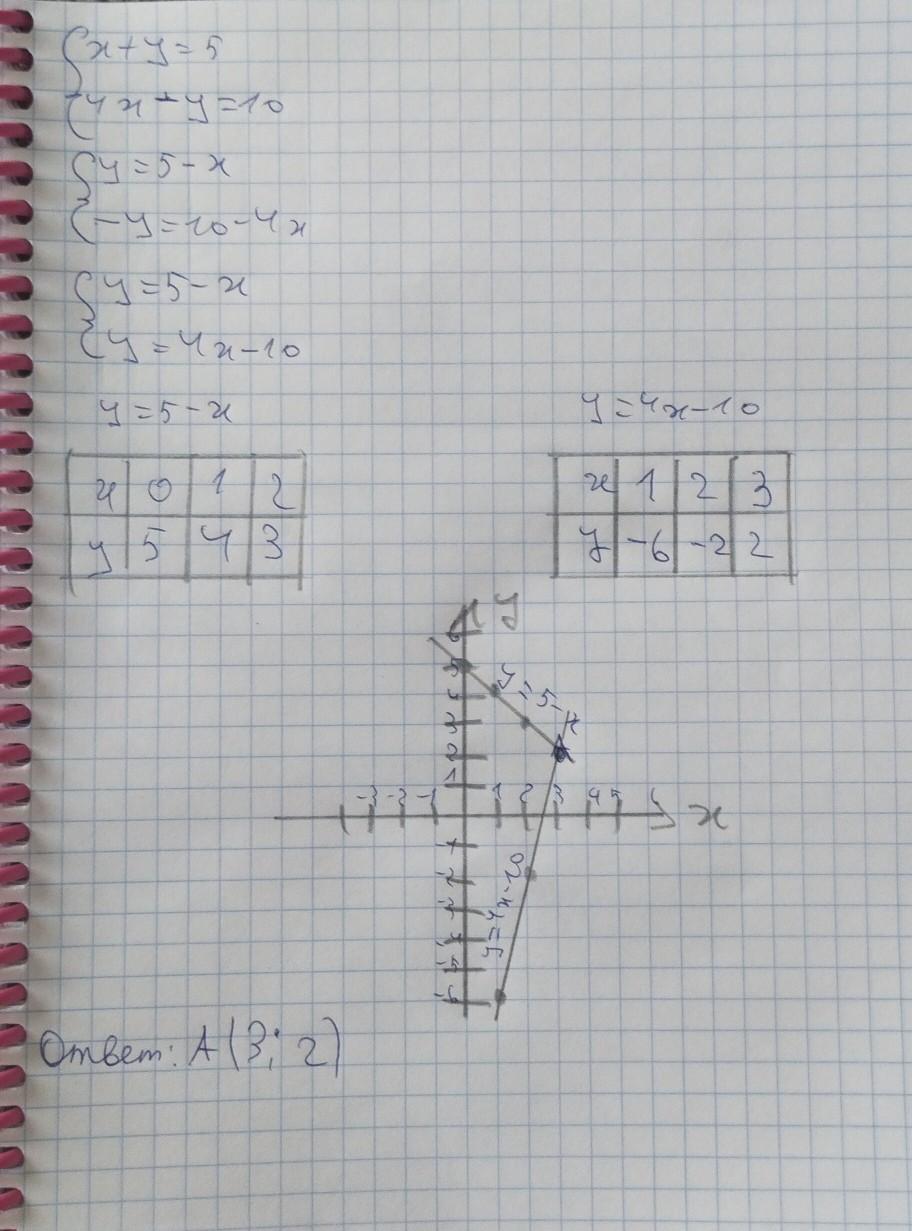 x+y=5
4x-y=10
y=5-x
-y=10-4x
y=5-x
y=4x-10
y=5-x
x 0 1 2
y 5 4 3
y=4x-10
x 1 2 3
y -6 -2 2
y
6
5
y=5-x
4
3
2
A
1
-3 -2 -1 1 2 3 4 5 x
-1
-2
-3
-4
-5
-6
y=4x-10
Ответ: A(3; 2)